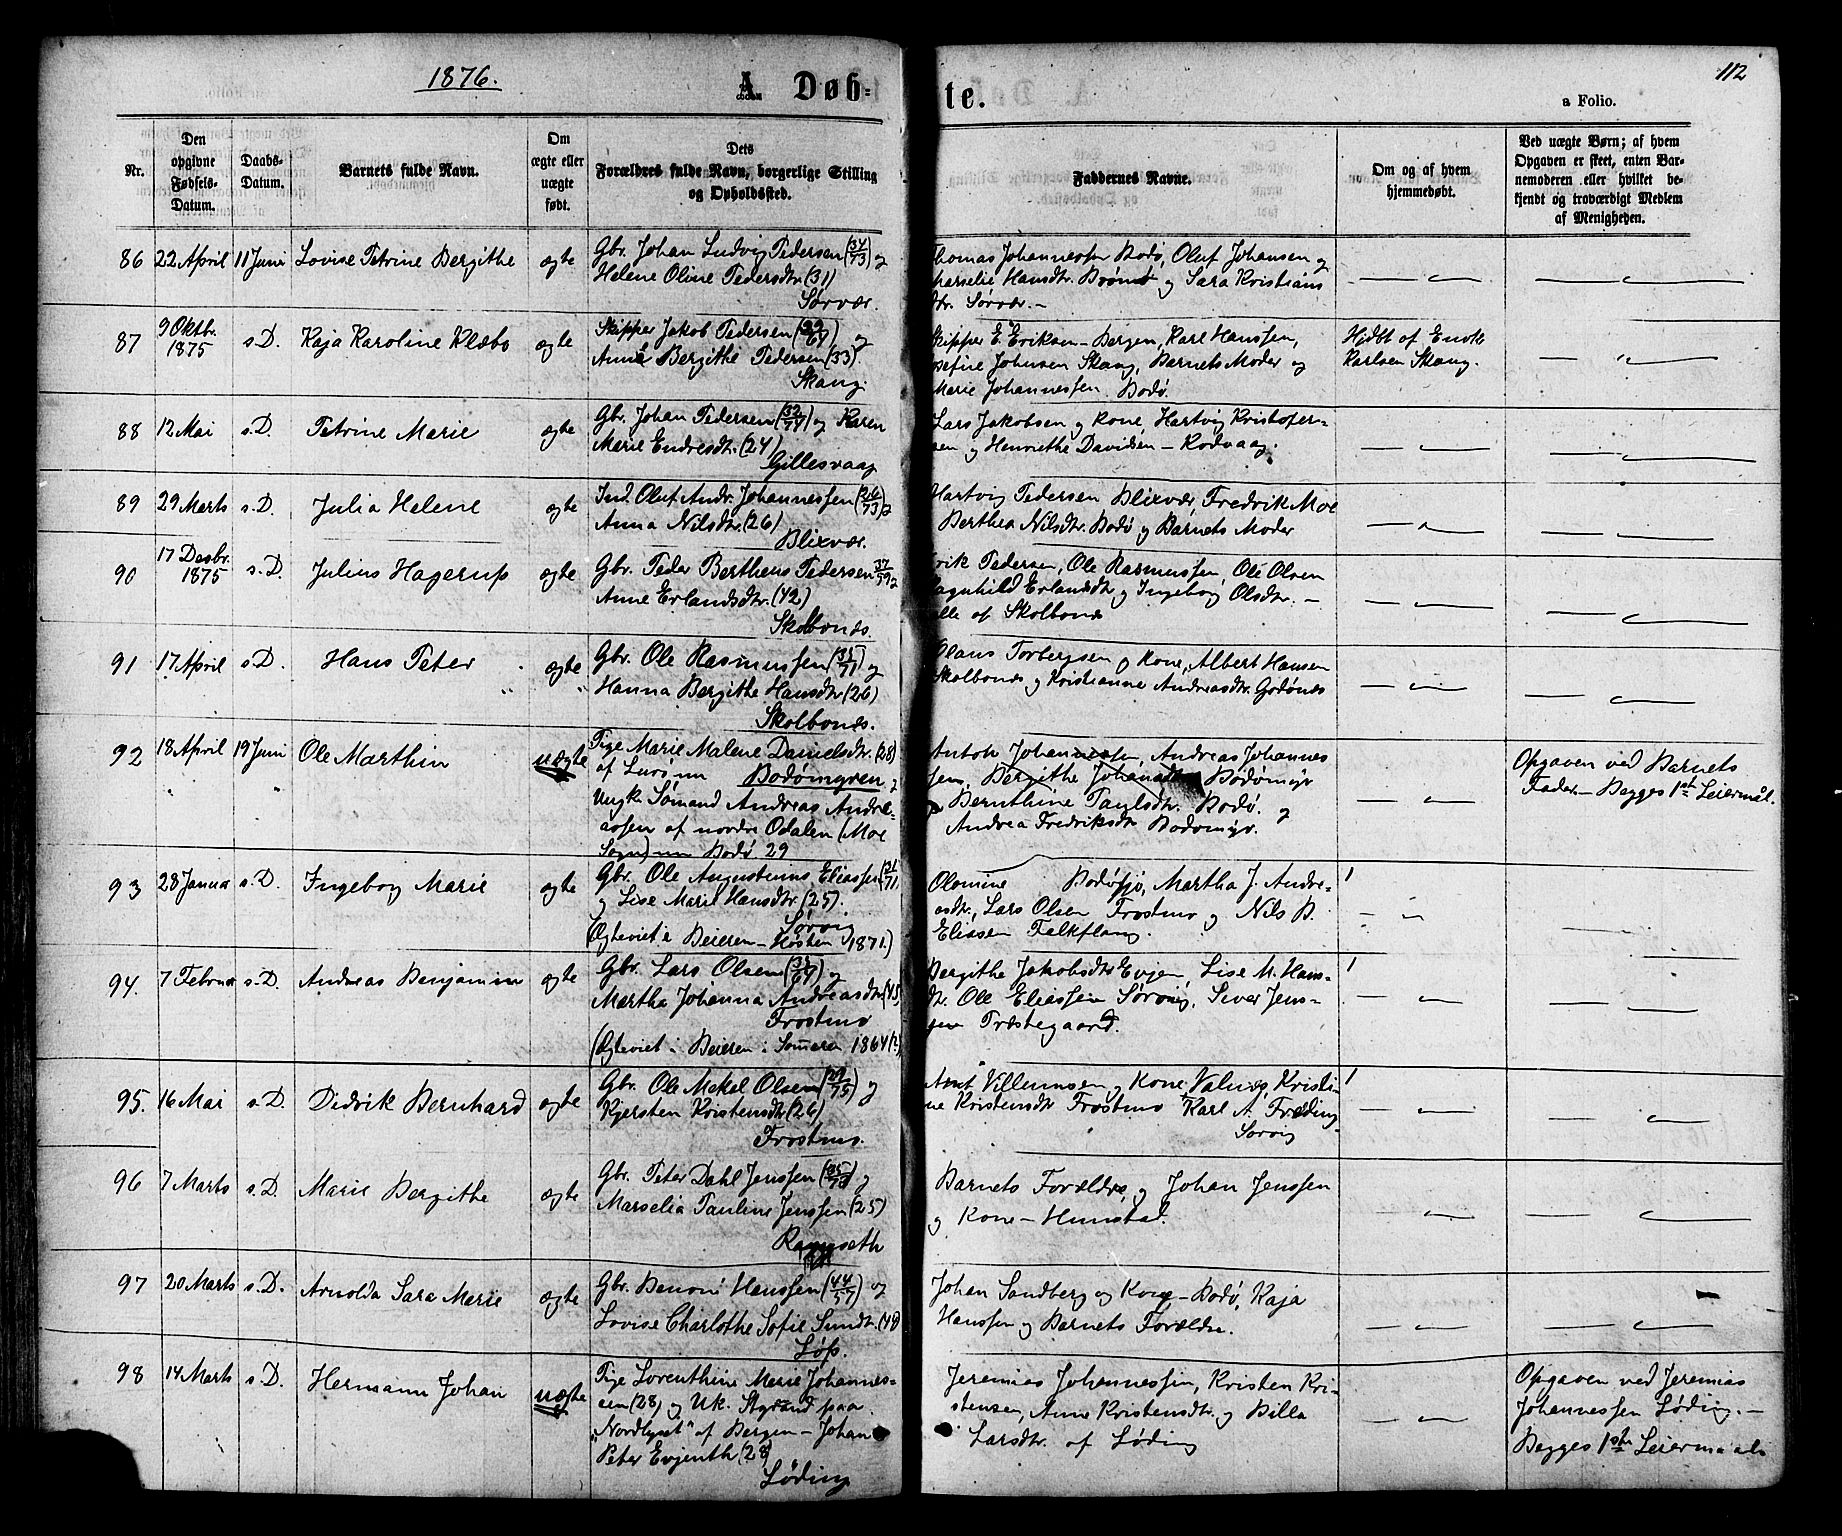 1876.
A. Døb=
te.
112
a Folio.
Nr.
Den
opgivne
Fødsels-
Datum.
Daabs-
Datum.
Barnets fulde Navn.
Om
ægte eller
uægte
født.
Dets
Forældres fulde Navn, borgerlige Stilling
og Opholdssted.
Faddernes Navne.
Om og af hvem
hjemmedøbt.
Ved uægte Børn; af hvem
Opgaven er skeet, enten Bar-
nemoderen eller hvilket be-
kjendt og troværdigt Medlem
af Menigheden.
86 22 April 11 Juni Lovise Petrine Bergithe ægte
Gbr. Johan Ludvig Pedersen (34/73) og
Helene Oline Pedersdtr. (31)
Sørvær.
Thomas Johannesen Bodø, Oluf Johansen og
Marselie Hansdtr. Brømd og Sara Kristians
dtr. Sørvær. –
87 9 Oktbr. 1875 s.D. Kaja Karoline Klæbo ægte
Skipper Jakob Pedersen (39/67) og
Anne Bergithe Pedersen (33).
Skaug.
Skipper E. Eriksen – Bergen, Karl Hanssen,
Josefine Johnsen Skaug, Barnets Moder og
Marie Johannessen Bodø.
Hjdbt af Enok
Karlsen Skaug.
88 12 Mai s.D. Petrine Marie ægte
Gbr. Johan Pedersen (32/74) og Karen
Marie Endresdtr. (24)
Gillesvaag
Lars Jakobsen og Kone, Hartvig Kristofer-
sen og Henriethe Davidsen – Rodvaag.
89 29 Marts s.D. Julia Helene ægte
Ind. Oluf Andr. Johannessen (26/73) og
Anna Nilsdtr. (26)
Blixvær.
Hartvig Pedersen Blixvær, Fredrik Moe
Berthea Nilsdtr. Bodø og Barnets Moder
90 17 Desbr. 1875 s.D. Julius Hagerup ægte
Gbr. Peder Bertheus Pedersen 37/59 og
Anne Erlandsdtr. (42)
Skolbonæs.
Erik Pedersen, Ole Rasmussen, Ole Olsen
Ragnhild Erlandsdtr og Ingeborg Olsdtr. –
alle af Skolbonæs
91 17 April s.D. Hans Peter ægte
Gbr. Ole Rasmussen (35/71) og
Hanna Bergithe Hansdtr (26)
Skolbonæs.
Olaus Torbergsen og Kone, Albert Hansen
Skolbonæs og Kristianne Andreasdtr. Godønæs
92 18 April 19 Juni Ole Marthin uægte
Pige Marie Malene Danielsdtr. (28)
af Lurø nu Bodømyren og
Ungk. Sømand Andreas Andre-
assen af nordre Odalen (Moe
Sogn) nu Bodø 29
Anton Johannessen, Andreas Johannes
sen, Bergithe Bodømyr
Bernthine Paulsdtr. Bodø. og
Andrea Fredriksdtr Bodømyr.
Opgaven ved Barnets
Fader – Begges 1ste Leiermål.
93 28 Januar s.D. Ingeborg Marie ægte
Gbr. Ole Augustinus Eliassen (36/71)
og Lise Marie Hansdtr. (25).
Sørvig
(Ægteviet i Beieren – Høsten 1871.)
Olomine Bodøsjø, Martha J. Andre-
asdtr., Lars Olsen Frostmo og Nils B.
Eliasen Falkflaug.
94. 7 Februar s.D. Andreas Benjamin ægte
Gbr. Lars Olsen (35/64) og
Martha Johanna Andreasdtr (45)
Frostmo
(Ægteviet i Beieren i Sommeren 1864 (?)
Bergithe Jakobsdtr Evjen, Lise M. Hans-
dtr. Ole Eliassen Sørvig, Sever Jens-
sen Præstegaard.
95. 16 Mai s.D. Didrik Bernhard ægte
Gbr. Ole Mekel Olsen (29/75) og
Kjersten Kristensdtr. (26)
Frostmo.
Arnt Villumsen og Kone Valnæs, Kristi-
ne Kristensdtr Frostmo Karl A. Fræding
Sørvig
96 7 Marts s.D. Marie Bergithe ægte
Gbr. Peter Dahl Jenssen og
Marselia Pauline Jenssen (25)
Barnets Forældre og Johan Jenssen
og Kone – Hunstad.
97 20 Marts s.D. Arnolda Sara Marie ægte
Gbr. Benoni Hanssen (44/57) og
Lovise Charlothe Sofie Sundt. (48)
Løp.
Johan Sandberg og Kone – Bodø, Kaja
Hanssen og Barnets Forældre.
98 14 Marts s.D. Hermann Johan uægte
Pige Lorenthine Marie Johannes-
sen (28) og Uk. Styrmd paa
"Nordlyset" af Bergen – Johan
Peter Evjenth (28)
Løding
Jeremias Johannessen, Kristen Kri-
stensen, Anne Kristensdtr. og Billa
Larsdtr. af Løding
Opgaven ved Jeremias
Johannessen Løding. –
Begges 1ste Leiermaal